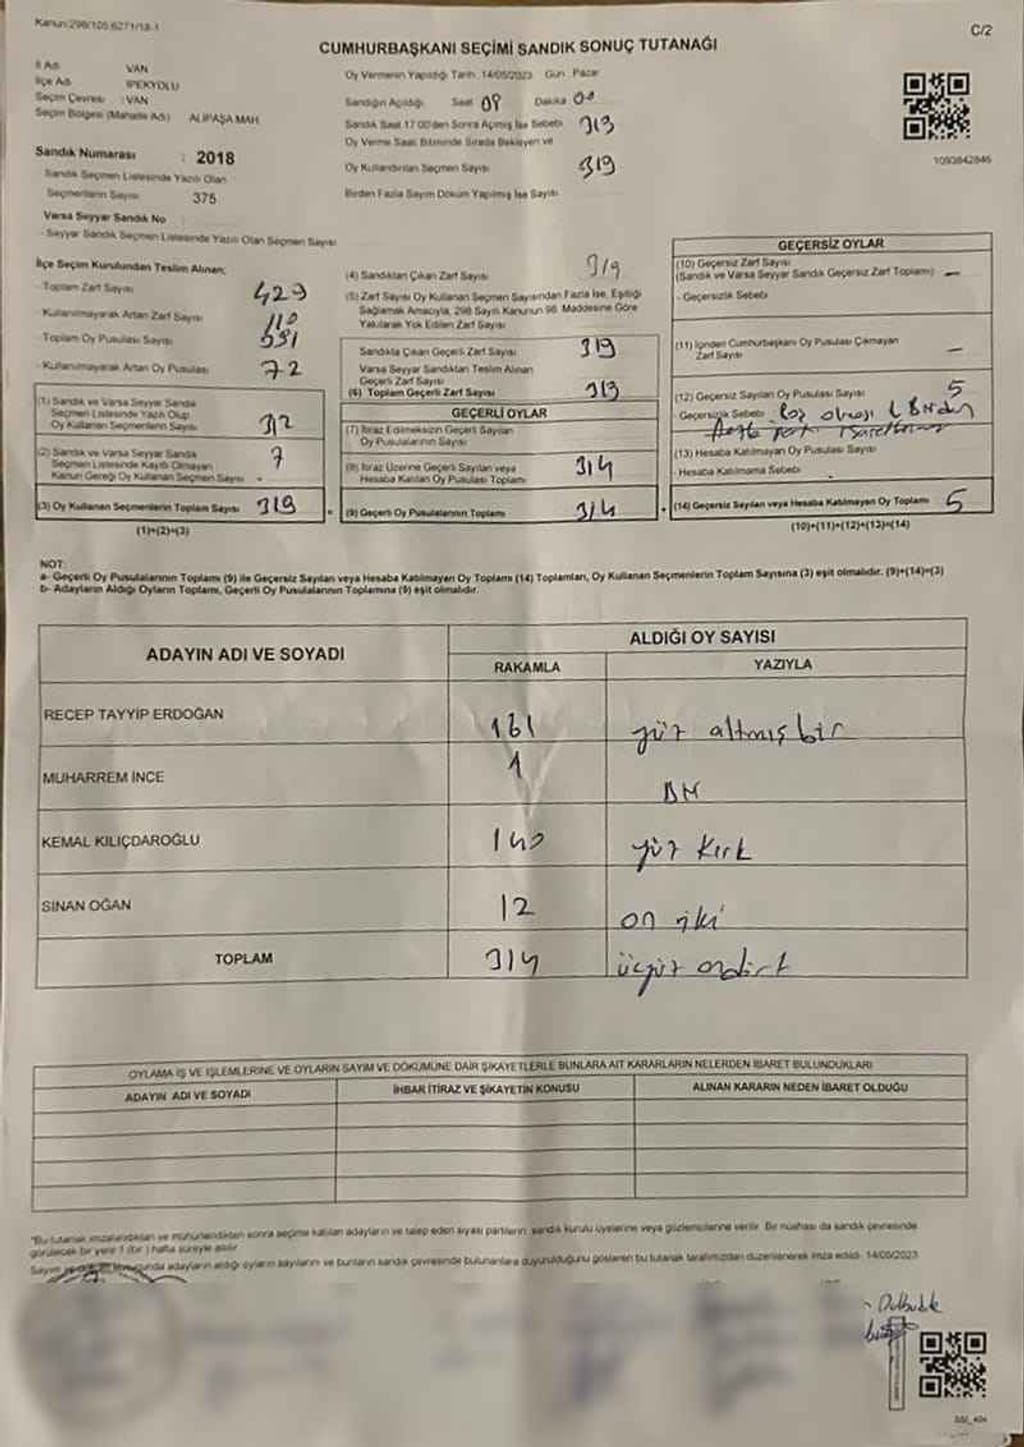 Kanun:298/105.6271/18-1
C/2
CUMHURBAŞKANI SEÇİMİ SANDIK SONUÇ TUTANAĞI
İl Adı VAN
İlçe Adı İPEKYOLU
Seçim Çevresi : VAN
Seçim Bölgesi (Mahalle Adı) ALİPAŞA MAH.
Sandık Numarası : 2018
Sandık Seçmen Listesinde Yazılı Olan
Seçmenlerin Sayısı 375
Varsa Seyyar Sandık No
- Seyyar Sandık Seçmen Listesinde Yazılı Olan Seçmen Sayısı
Oy Vermenin Yapıldığı Tarih 14/05/2023 Gün Pazar
Sandığın Açıldığı Saat 08 Dakika 00
Sandık Saat 17.00'den Sonra Açılmış İse Sebebi 313
Oy Verme Saati Bitiminde Sırada Bekleyen ve
Oy Kullandırılan Seçmen Sayısı 319
Birden Fazla Sayım Döküm Yapılmış İse Sayısı
1093842846
İlçe Seçim Kurulundan Teslim Alınan;
- Toplam Zarf Sayısı 429
- Kullanılmayarak Artan Zarf Sayısı 110
Toplam Oy Pusulası Sayısı
- Kullanılmayarak Artan Oy Pusulası 72
(1) Sandık ve Varsa Seyyar Sandık
Seçmen Listesinde Yazılı Olup
Oy Kullanan Seçmenlerin Sayısı 312
(2) Sandık ve Varsa Seyyar Sandık
Seçmen Listesinde Kayıtlı Olmayan
Kanun Gereği Oy Kullanan Seçmen Sayısı 7
(3) Oy Kullanan Seçmenlerin Toplam Sayısı 319
(1)+(2)=(3)
(4) Sandıktan Çıkan Zarf Sayısı 319
(5) Zarf Sayısı Oy Kullanan Seçmen Sayısından Fazla İse, Eşitliği
Sağlamak Amacıyla, 298 Sayılı Kanunun 98. Maddesine Göre
Yakılarak Yok Edilen Zarf Sayısı
Sandıkta Çıkan Geçerli Zarf Sayısı 319
Varsa Seyyar Sandıktan Teslim Alınan
Geçerli Zarf Sayısı
(6) Toplam Geçerli Zarf Sayısı 313
GEÇERLİ OYLAR
(7) İtiraz Edilmeksizin Geçerli Sayılan
Oy Pusulalarının Sayısı
(8) İtiraz Üzerine Geçerli Sayılan veya
Hesaba Katılan Oy Pusulası Toplamı 314
(9) Geçerli Oy Pusulalarının Toplamı 314
GEÇERSİZ OYLAR
(10) Geçersiz Zarf Sayısı
(Sandık ve Varsa Seyyar Sandık Geçersiz Zarf Toplamı) —
- Geçersizlik Sebebi
(11) İçinden Cumhurbaşkanı Oy Pusulası Çıkmayan
Zarf Sayısı —
(12) Geçersiz Sayılan Oy Pusulası Sayısı 5
- Geçersizlik Sebebi Boş olması Birden
(13) Hesaba Katılmayan Oy Pusulası Sayısı
- Hesaba Katılmama Sebebi
(14) Geçersiz Sayılan veya Hesaba Katılmayan Oy Toplamı 5
(10)+(11)+(12)+(13)=(14)
NOT:
a- Geçerli Oy Pusulalarının Toplamı (9) ile Geçersiz Sayılan veya Hesaba Katılmayan Oy Toplamı (14) Toplamları, Oy Kullanan Seçmenlerin Toplam Sayısına (3) eşit olmalıdır. (9)+(14)=(3)
b- Adayların Aldığı Oyların Toplamı, Geçerli Oy Pusulalarının Toplamına (9) eşit olmalıdır.
ADAYIN ADI VE SOYADI
ALDIĞI OY SAYISI
RAKAMLA YAZIYLA
RECEP TAYYİP ERDOĞAN 161 yüz altmış bir
MUHARREM İNCE 1 BİR
KEMAL KILIÇDAROĞLU 140 yüz kırk
SİNAN OĞAN 12 on iki
TOPLAM 314 üçyüz ondört
OYLAMA İŞ VE İŞLEMLERİNE VE OYLARIN SAYIM VE DÖKÜMÜNE DAİR ŞİKAYETLERLE BUNLARA AİT KARARLARIN NELERDEN İBARET BULUNDUKLARI
ADAYIN ADI VE SOYADI İHBAR İTİRAZ VE ŞİKAYETİN KONUSU ALINAN KARARIN NEDEN İBARET OLDUĞU
*Bu tutanak imzalandıktan ve mühürlendikten sonra seçime katılan adayların ve talep eden siyasi partilerin sandık kurulu üyelerine veya gözlemcilerine verilir. Bir nüshası da sandık çevresinde
görülecek bir yere 1 (bir) hafta süreyle asılır.
Sayım adayların aldığı oyların sayılarını ve bunların sandık çevresinde bulunanlara duyurulduğunu gösteren bu tutanak tarafımızdan düzenlenerek imza edildi. 14/05/2023